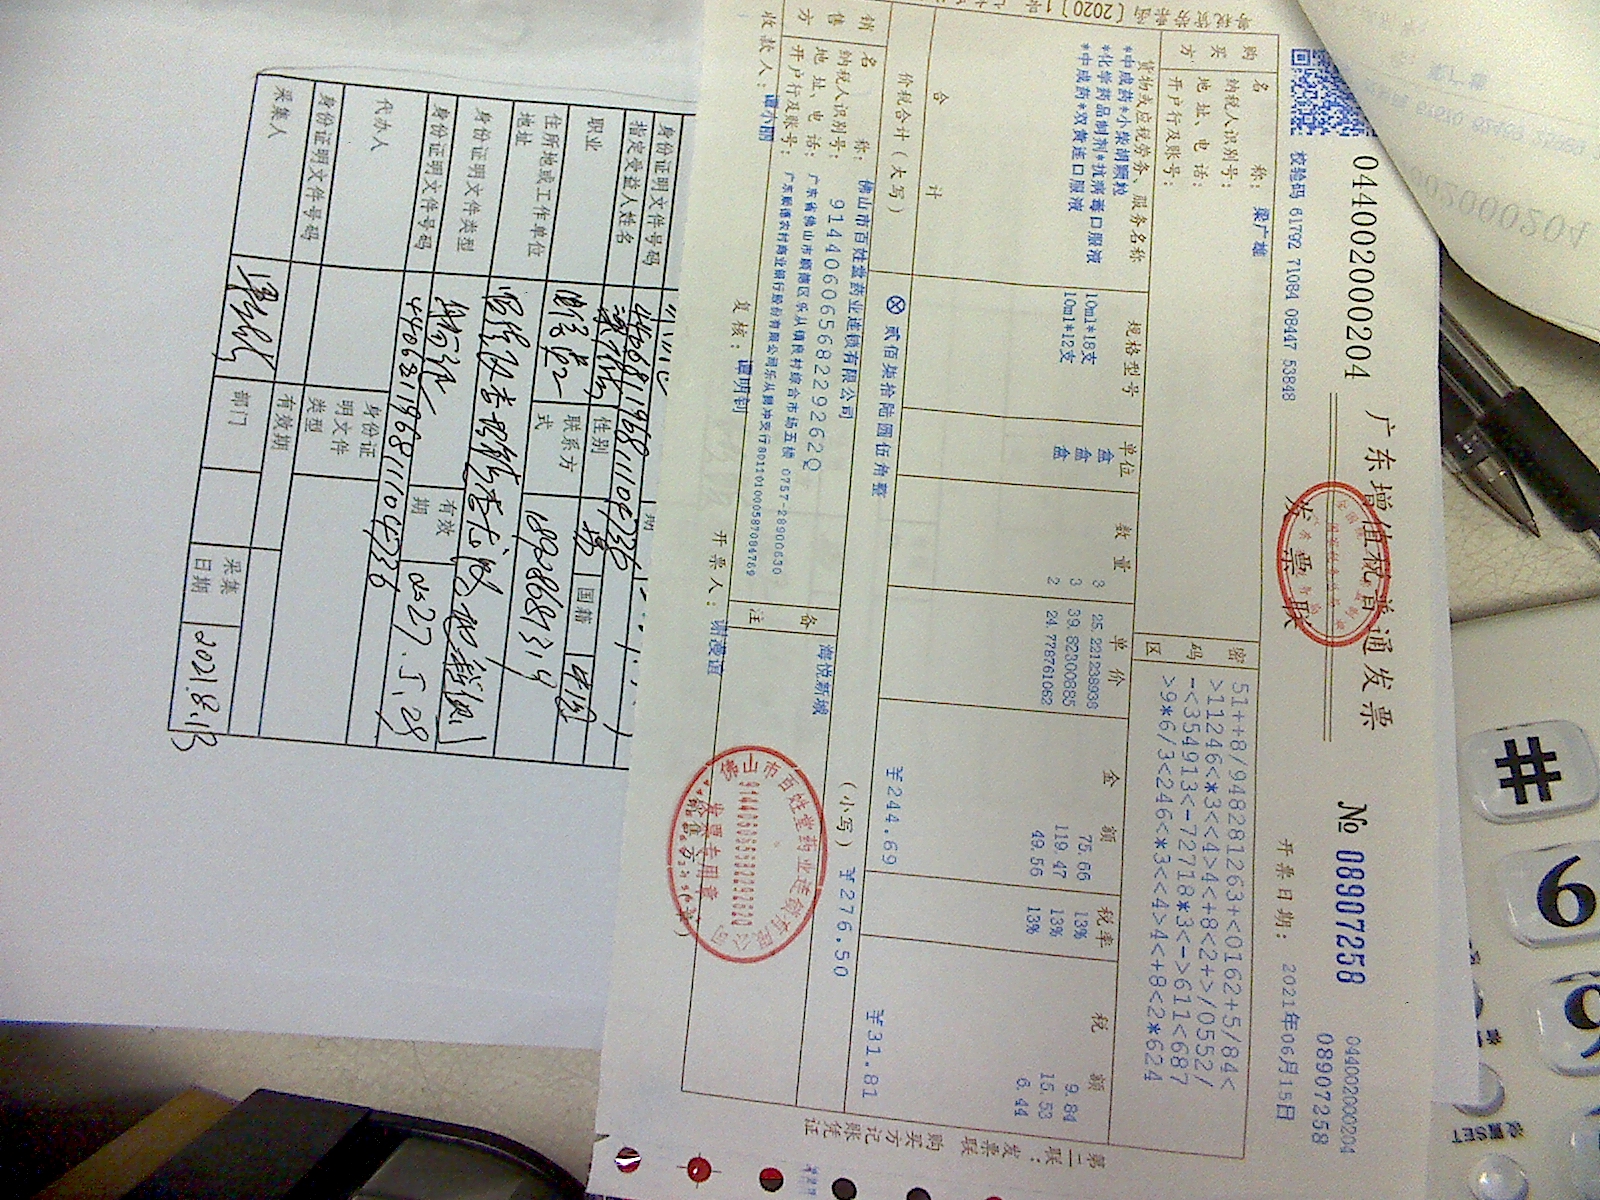 广东增值税普通发票
044002000204
№ 08907258
044002000204
08907258
发票联
校验码 61792 71084 08447 53848
开票日期: 2021年06月15日
购买方
名 称: 梁广雄
纳税人识别号:
地址、电话:
开户行及账号:
密码区
51++8/948281263+<0162+5/84<
>11246<*3<<4>4<+8<2+>/0552/
-<354913<-72718*3<->611<687
>9*6/3<246<*3<<4>4<+8<2*624
货物或应税劳务、服务名称 规格型号 单位 数量 单价 金额 税率 税额
*中成药*小柴胡颗粒 盒 3 25.221238938 75.66 13% 9.84
*化学药品制剂*抗病毒口服液 10ml*18支 盒 3 39.82300885 119.47 13% 15.53
*中成药*双黄连口服液 10ml*12支 盒 2 24.778761062 49.56 13% 6.44
合 计 ¥244.69 ¥31.81
价税合计(大写) ⊗ 贰佰柒拾陆圆伍角整 (小写) ¥276.50
销售方
名 称: 佛山市百姓堂药业连锁有限公司
纳税人识别号: 91440606568229262Q
地址、电话: 广东省佛山市顺德区乐从镇良村综合市场五楼 0757-28900630
开户行及账号: 广东顺德农村商业银行股份有限公司乐从腾冲支行801101000587084769
备注
海悦新城
收款人: 谭小丽
复核: 谭明钊
开票人: 谢漫谊
销售方(章)
佛山市百姓堂药业连锁有限公司
发票专用章
第二联:发票联 购买方记账凭证
身份证明文件号码 440681196811104736
指定受益人姓名 性别 男 国籍 中国
职业 联系方式 18928681319
住所地或工作单位地址
身份证明文件类型 身份证 有效期 2027.5.29
身份证明文件号码 440681196811104736
代办人 身份证明文件类型
身份证明文件号码 有效期
采集人 部门 采集日期 2021.8.13
#
9
设置SET